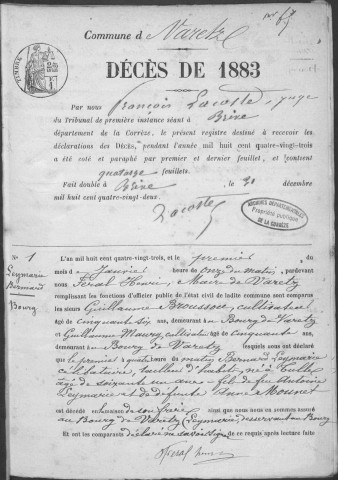 Commune d Varetz
DÉCÈS DE 1883
Par nous François Lacoste, juge
du Tribunal de première instance séant à Brive
département de la Corrèze, le présent registre destiné à recevoir les
déclarations des Décès, pendant l'année mil huit cent quatre-vingt-trois
a été coté et paraphé par premier et dernier feuillet, et contient
quatorze feuillets.
Fait double à Brive le 20 décembre
mil huit cent quatre-vingt-deux.
Lacoste
ARCHIVES DÉPARTEMENTALES
Propriété publique
DE LA CORRÈZE
N° 1
Leymarie
Bernard
Bourg
L'an mil huit cent quatre-vingt-trois, et le premier du
mois de Janvier heure de onze du matin, pardevant
nous Féral Henri, Maire de Varetz
remplissant les fonctions d'officier public de l'état civil de ladite commune ont comparus
les sieurs Guillaume Brousse, cultivateur
âgé de cinquante six ans, demeurant au Bourg de Varetz
et Guillaume Maury, cultivateur âgé de cinquante ans,
demeurant au Bourg de Varetz lesquels nous ont déclaré
que le premier à quatre heures du matin, Bernard Leymarie
célibataire, tailleur d'habits, né à Tulle
âgé de soixante un ans, fils de feu Antoine
Leymarie et de défunte Anne Mounet
est décédé en la maison de son frère ainsi que nous nous en sommes assuré
au Bourg de Varetz Leymarie, desservant au Bourg
Et ont les comparants déclaré ne savoir signer de ce requis après lecture faite
Féral